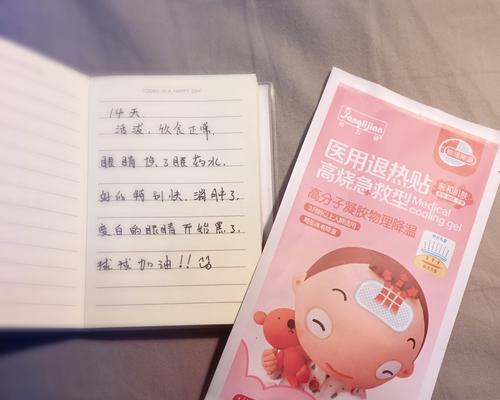 TODAY IS A HAPPY DAY
14天
活泼，饮食正常，
眼睛换了眼药水，
好的特别快，消肿了，
变白的眼睛开始黑了，
球球加油！！
医用退热贴
高烧急救型
Medical
cooling gel
高分子凝胶物理降温
亲和肌肤